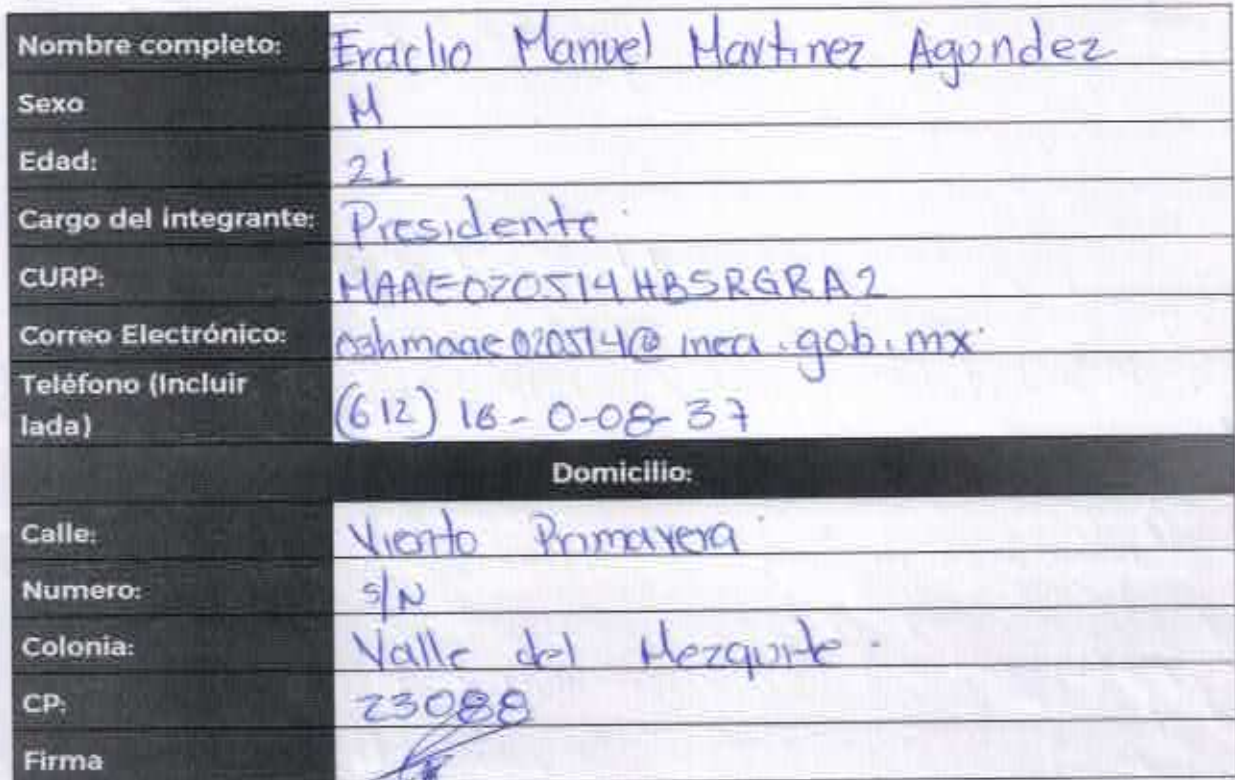 Nombre completo: Eraclio Manuel Martinez Agundez
Sexo M
Edad: 21
Cargo del integrante: Presidente
CURP: MAAE020514HBSRGRA2
Correo Electrónico: 03hmaae020514@inea.gob.mx
Teléfono (Incluir
lada) (612) 16-0-08-37
Domicilio:
Calle: Viento Primavera
Numero: S/N
Colonia: Valle del Mezquite
CP: 23088
Firma